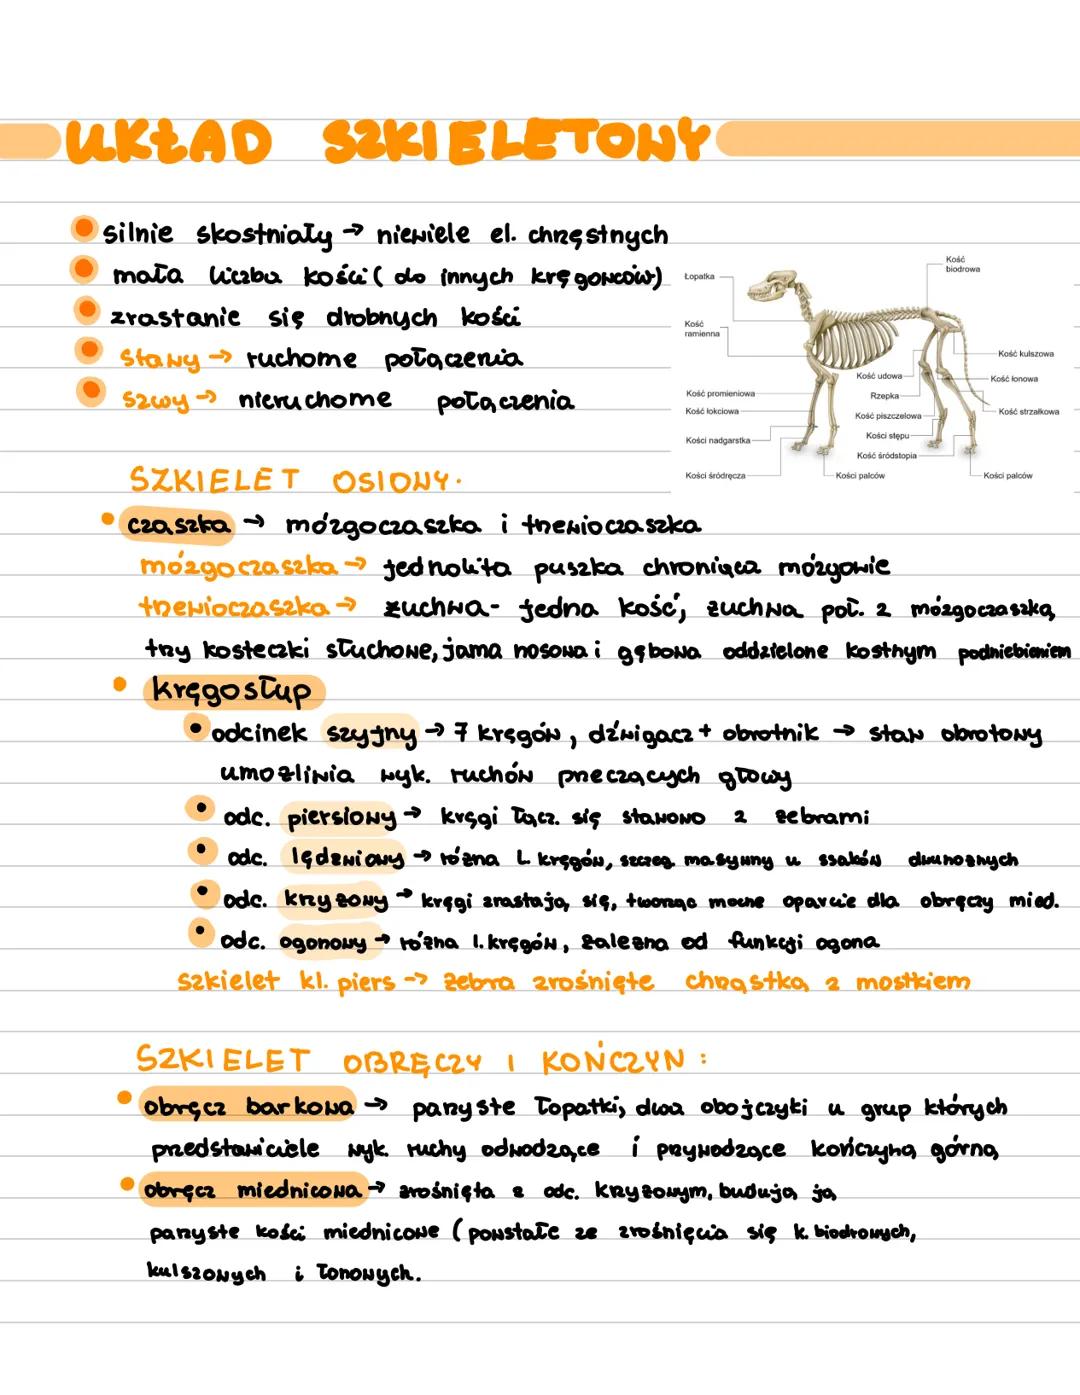 UKŁAD SZKIELETOWY
silnie skostniały → niewiele el. chrzęstnych
mała liczba kości ( do innych kręgowców)
zrastanie się drobnych kości
stawy → ruchome połączenia
szwy → nieruchome połączenia
Łopatka
Kość ramienna
Kość promieniowa
Kość łokciowa
Kości nadgarstka
Kości śródręcza
Kość biodrowa
Kość kulszowa
Kość udowa
Kość łonowa
Rzepka
Kość piszczelowa
Kość strzałkowa
Kości stępu
Kość śródstopia
Kości palców
Kości palców
SZKIELET OSIOWY.
czaszka → mózgoczaszka i trzewioczaszka
mózgoczaszka → jednolita puszka chroniąca mózgowie
trzewioczaszka → żuchwa - jedna kość, żuchwa poł. z mózgoczaszką,
trzy kosteczki słuchowe, jama nosowa i gębowa oddzielone kostnym podniebieniem
kręgosłup
odcinek szyjny → 7 kręgów, dźwigacz + obrotnik → staw obrotowy
umożliwia wyk. ruchów przeczących głowy
odc. piersiowy → kręgi łącz. się stawowo z żebrami
odc. lędźwiowy → różna l. kręgów, szczeg. masywny u ssaków dwunożnych
odc. krzyżowy → kręgi zrastają się, tworząc mocne oparcie dla obręczy mied.
odc. ogonowy → różna l. kręgów, zależna od funkcji ogona
szkielet kl. piers → żebra zrośnięte chrząstką z mostkiem
SZKIELET OBRĘCZY I KOŃCZYN :
obręcz barkowa → parzyste łopatki, dwa obojczyki u grup których
przedstawiciele wyk. ruchy odwodzące i przywodzące kończyną górną
obręcz miednicowa → zrośnięta z odc. krzyżowym, budują ją
parzyste kości miednicowe ( powstałe ze zrośnięcia się k. biodrowych,
kulszowych i łonowych.